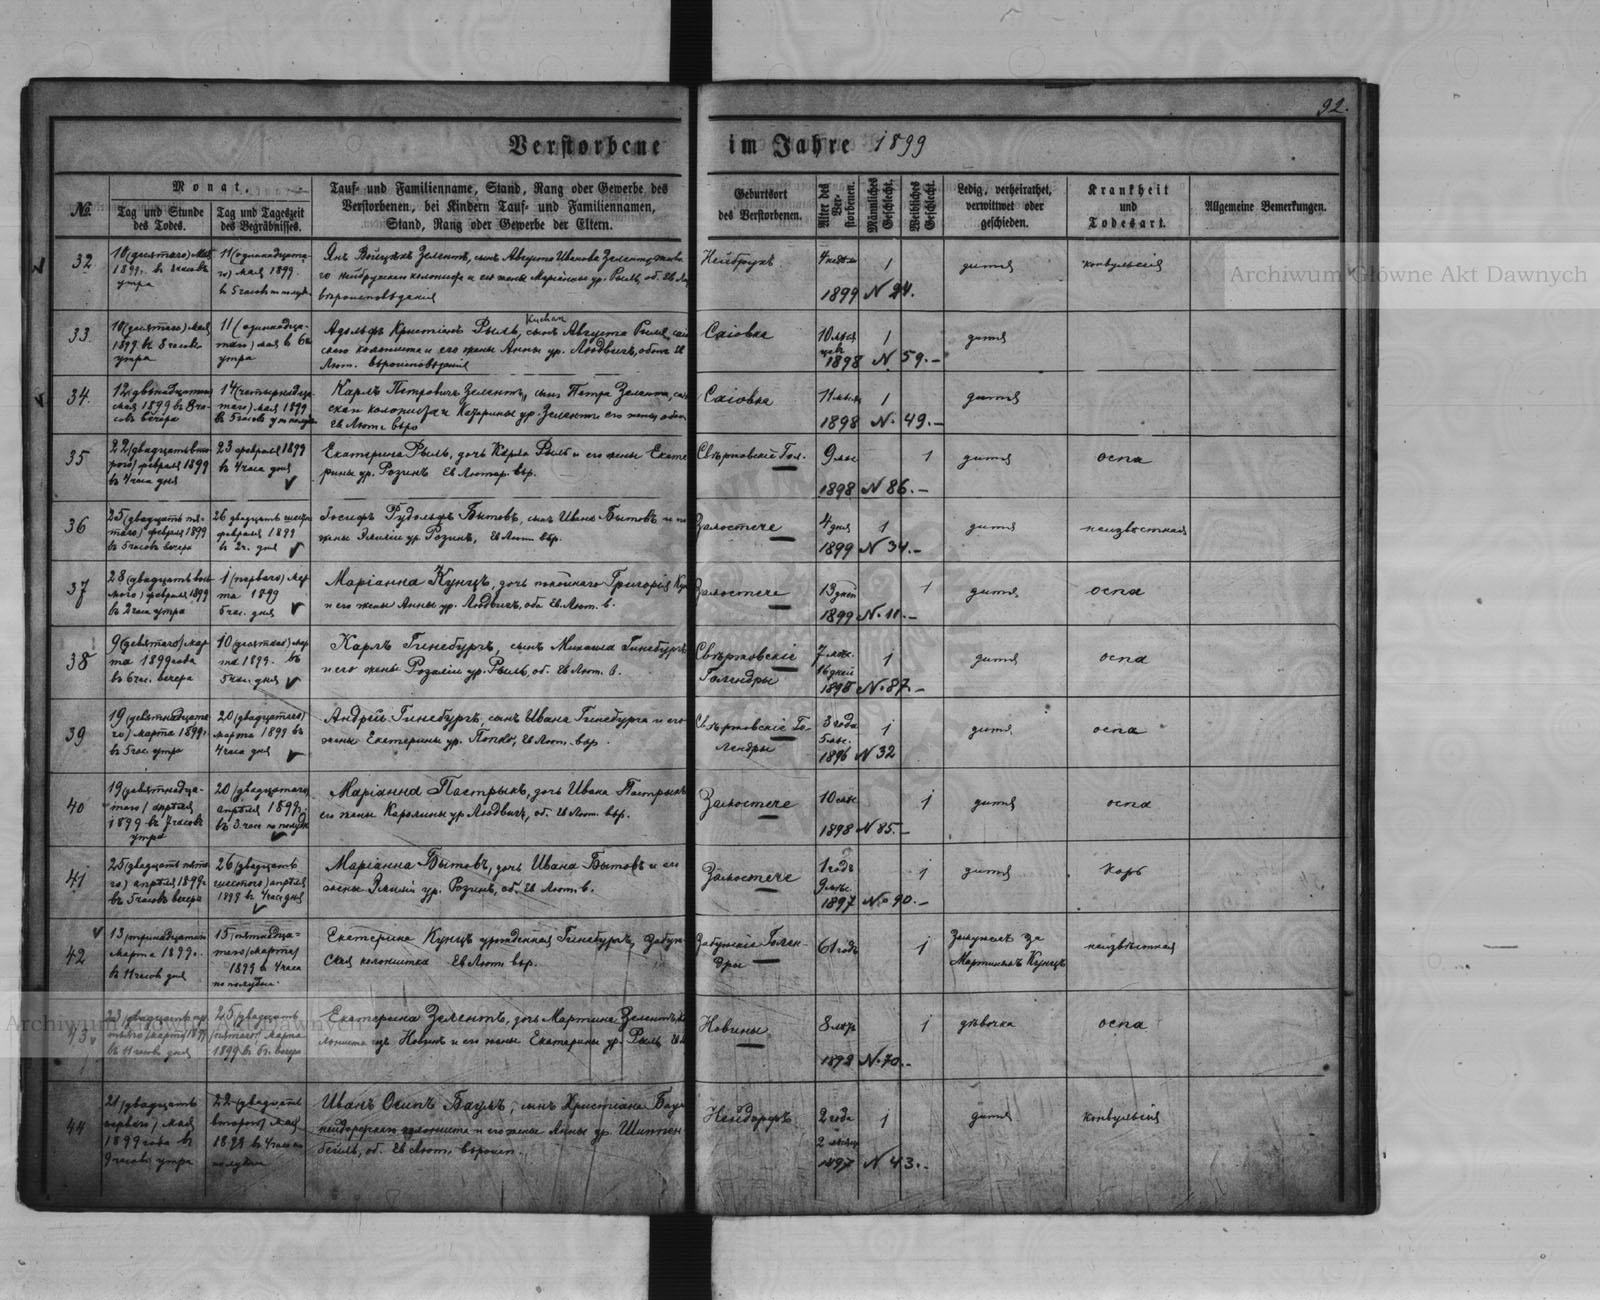 92.
Verstorbene im Jahre 1899
№.
Monat.
Tag und Stunde des Todes.
Tag und Tageszeit des Begräbnisses.
Tauf- und Familienname, Stand, Rang oder Gewerbe des
Verstorbenen, bei Kindern Tauf- und Familiennamen,
Stand, Rang oder Gewerbe der Eltern.
Geburtsort
des Verstorbenen.
Alter des Verstorbenen.
Männliches Geschlecht.
Weibliches Geschlecht.
Ledig, verheirathet,
verwittwet oder
geschieden.
Krankheit
und
Todesart.
Allgemeine Bemerkungen.
32
10 (десятаго) мая
1899. в 8 часовъ
утра
11 (одинадцата-
го) мая 1899.
въ 5 часов
Янъ Зелентъ, сынъ Августа Иванова
колониста и его жены Маріанны ур. Рыль, об. Ев. Лют.
вѣроисповѣданія
Нейбругъ
1
1899 N 24.
дитя
конвульсія
33
10 (десятаго) мая
1899 въ 8 часовъ
утра
11 (одинадца-
таго) мая в 6
утра
Kuchar
Адольфъ Кристіанъ Рыль, сынъ Августа Рыля
колониста и его жены Анны ур. Людвигъ, обоих Ев
Лют. вѣроисповѣданія
Саіовка
10
1
1898 N 59.-
дитя
34.
12 (двенадцатаго
мая 1899 въ 8 ча-
совъ вечера
14 (четырнадца-
таго) мая 1899
въ 5 часовъ
Карлъ Петровичъ Зелентъ, сынъ Петра Зелента
колониста и Катарины ур. Зелентъ его жены
Ев Лют. вѣро
Саіовка
11
1
1898 N. 49.-
дитя
35
22 (двадцать вто-
рого) февраля 1899
въ 4 часа дня
23 февраля 1899
въ 4 часа дня
Екатерина Рыль, дочь Карла Рыль и его жены Екате
рины ур. Розинъ. Ев Лютер. вѣр.
Свѣржовскіе Гол.
9 мѣс
1
1898 N 86.-
дитя
оспа
36
25 (двадцать пя-
таго) февраля 1899
въ 5 часовъ вечера
26 двадцать шест
февраля 1899
въ 2 ч. дня
Іосифъ Рудольфъ Бытовъ, сынъ Ивана Бытовъ и
жены Эмиліи ур. Розинъ, Ев Лют. вѣр.
Замостече
4 дня
1
1899 N 34.-
дитя
неизвѣстная
37
28 (двадцать вось
мого) февраля 1899
въ 2 часа утра
1 (перваго) мар
та 1899
час. дня
Маріанна Кунцъ, дочь покойнаго Григорія
и его жены Анны ур. Людвигъ, оба Ев. Лют. в.
Замостече
13 дней
1
1899 N. 11.-
дитя
оспа
38
9 (девятаго) мар
та 1899 года
въ 6 час. вечера
10 (десятаго) мар
та 1899. въ
час. дня
Карлъ Гинебургъ, сынъ Михаила Гинебургъ
и его жены Розаліи ур. Рыль, об. Ев Лют. в.
Свѣржовскіе
Голендры
7 мѣс.
16 дней
1
1898 N. 87.-
дитя
оспа
39
19 (девятнадцата
го) марта 1899
въ 5 час. утра
20 (двадцатаго)
марта 1899 въ
4 часа дня
Андрей Гинебургъ, сынъ Ивана Гинебурга и его
жены Екатерины ур. Попко, Ев Лют. вѣр.
Свѣржовскіе Го-
лендры
3 года
5 мѣс.
1
1896 N 32
дитя
оспа
40
19 (девятнадца-
таго) апрѣля
1899 въ 7 часовъ
утра
20 (двадцатаго)
апрѣля 1899.
въ 3 час по полуд
Маріанна Пастрыкъ, дочь Ивана Пастрыкъ
его жены Каролины ур Людвигъ, об. Ев Лют. вѣр.
Замостече
10 мѣс
1
1898 N 85.-
дитя
оспа
41
25 (двадцать пята
го) апрѣля 1899
въ 5 часовъ вечера
26 (двадцать
шестого) апрѣля
1899 въ 4 час дня
Маріанна Бытовъ, дочь Ивана Бытовъ и его
жены Эмиліи ур. Розинъ, об. Ев Лют. в.
Замостече
1 годъ
9 мѣс
1
1897 N. 90.-
дитя
корь
42
13 (тринадцатаго
марта 1899.
въ 11 часов дня
15 (пятнадца-
таго) марта
1899 в 4 часа
по полудни.
Екатерина Кунцъ урожденная Гинебургъ, Забуж-
ская колонистка Ев Лют. вѣр.
Забужскіе Голен-
дры
61 годъ
1
Замужемъ за
Мартиномъ Кунцъ
неизвѣстная
43
марта 1899
въ 11 часов дня
25 (двадцать
пятаго) марта
1899 въ 6 ч. вечера
Екатерина Зелентъ, дочь Мартина Зелентъ
лониста изъ Новинъ и его жены Екатерины ур. Рыль
Новины
8
1
N. 70.-
дѣвочка
оспа
44
21 (двадцать
перваго) мая
1899 года въ
9 часовъ утра
22 (двадцать
второго) мая
1899 въ 4 час по
полудни
Иванъ Осипъ Баумъ, сынъ Христіана Баум
нейдорфскаго колониста и его жены Анны ур. Шиппен
бейль, об. Ев Лют. вѣроисп.
Нейдорфъ
2 года
2
1
1897 N 43.-
дитя
конвульсія
Archiwum Główne Akt Dawnych
Archiwum Główne Akt Dawnych